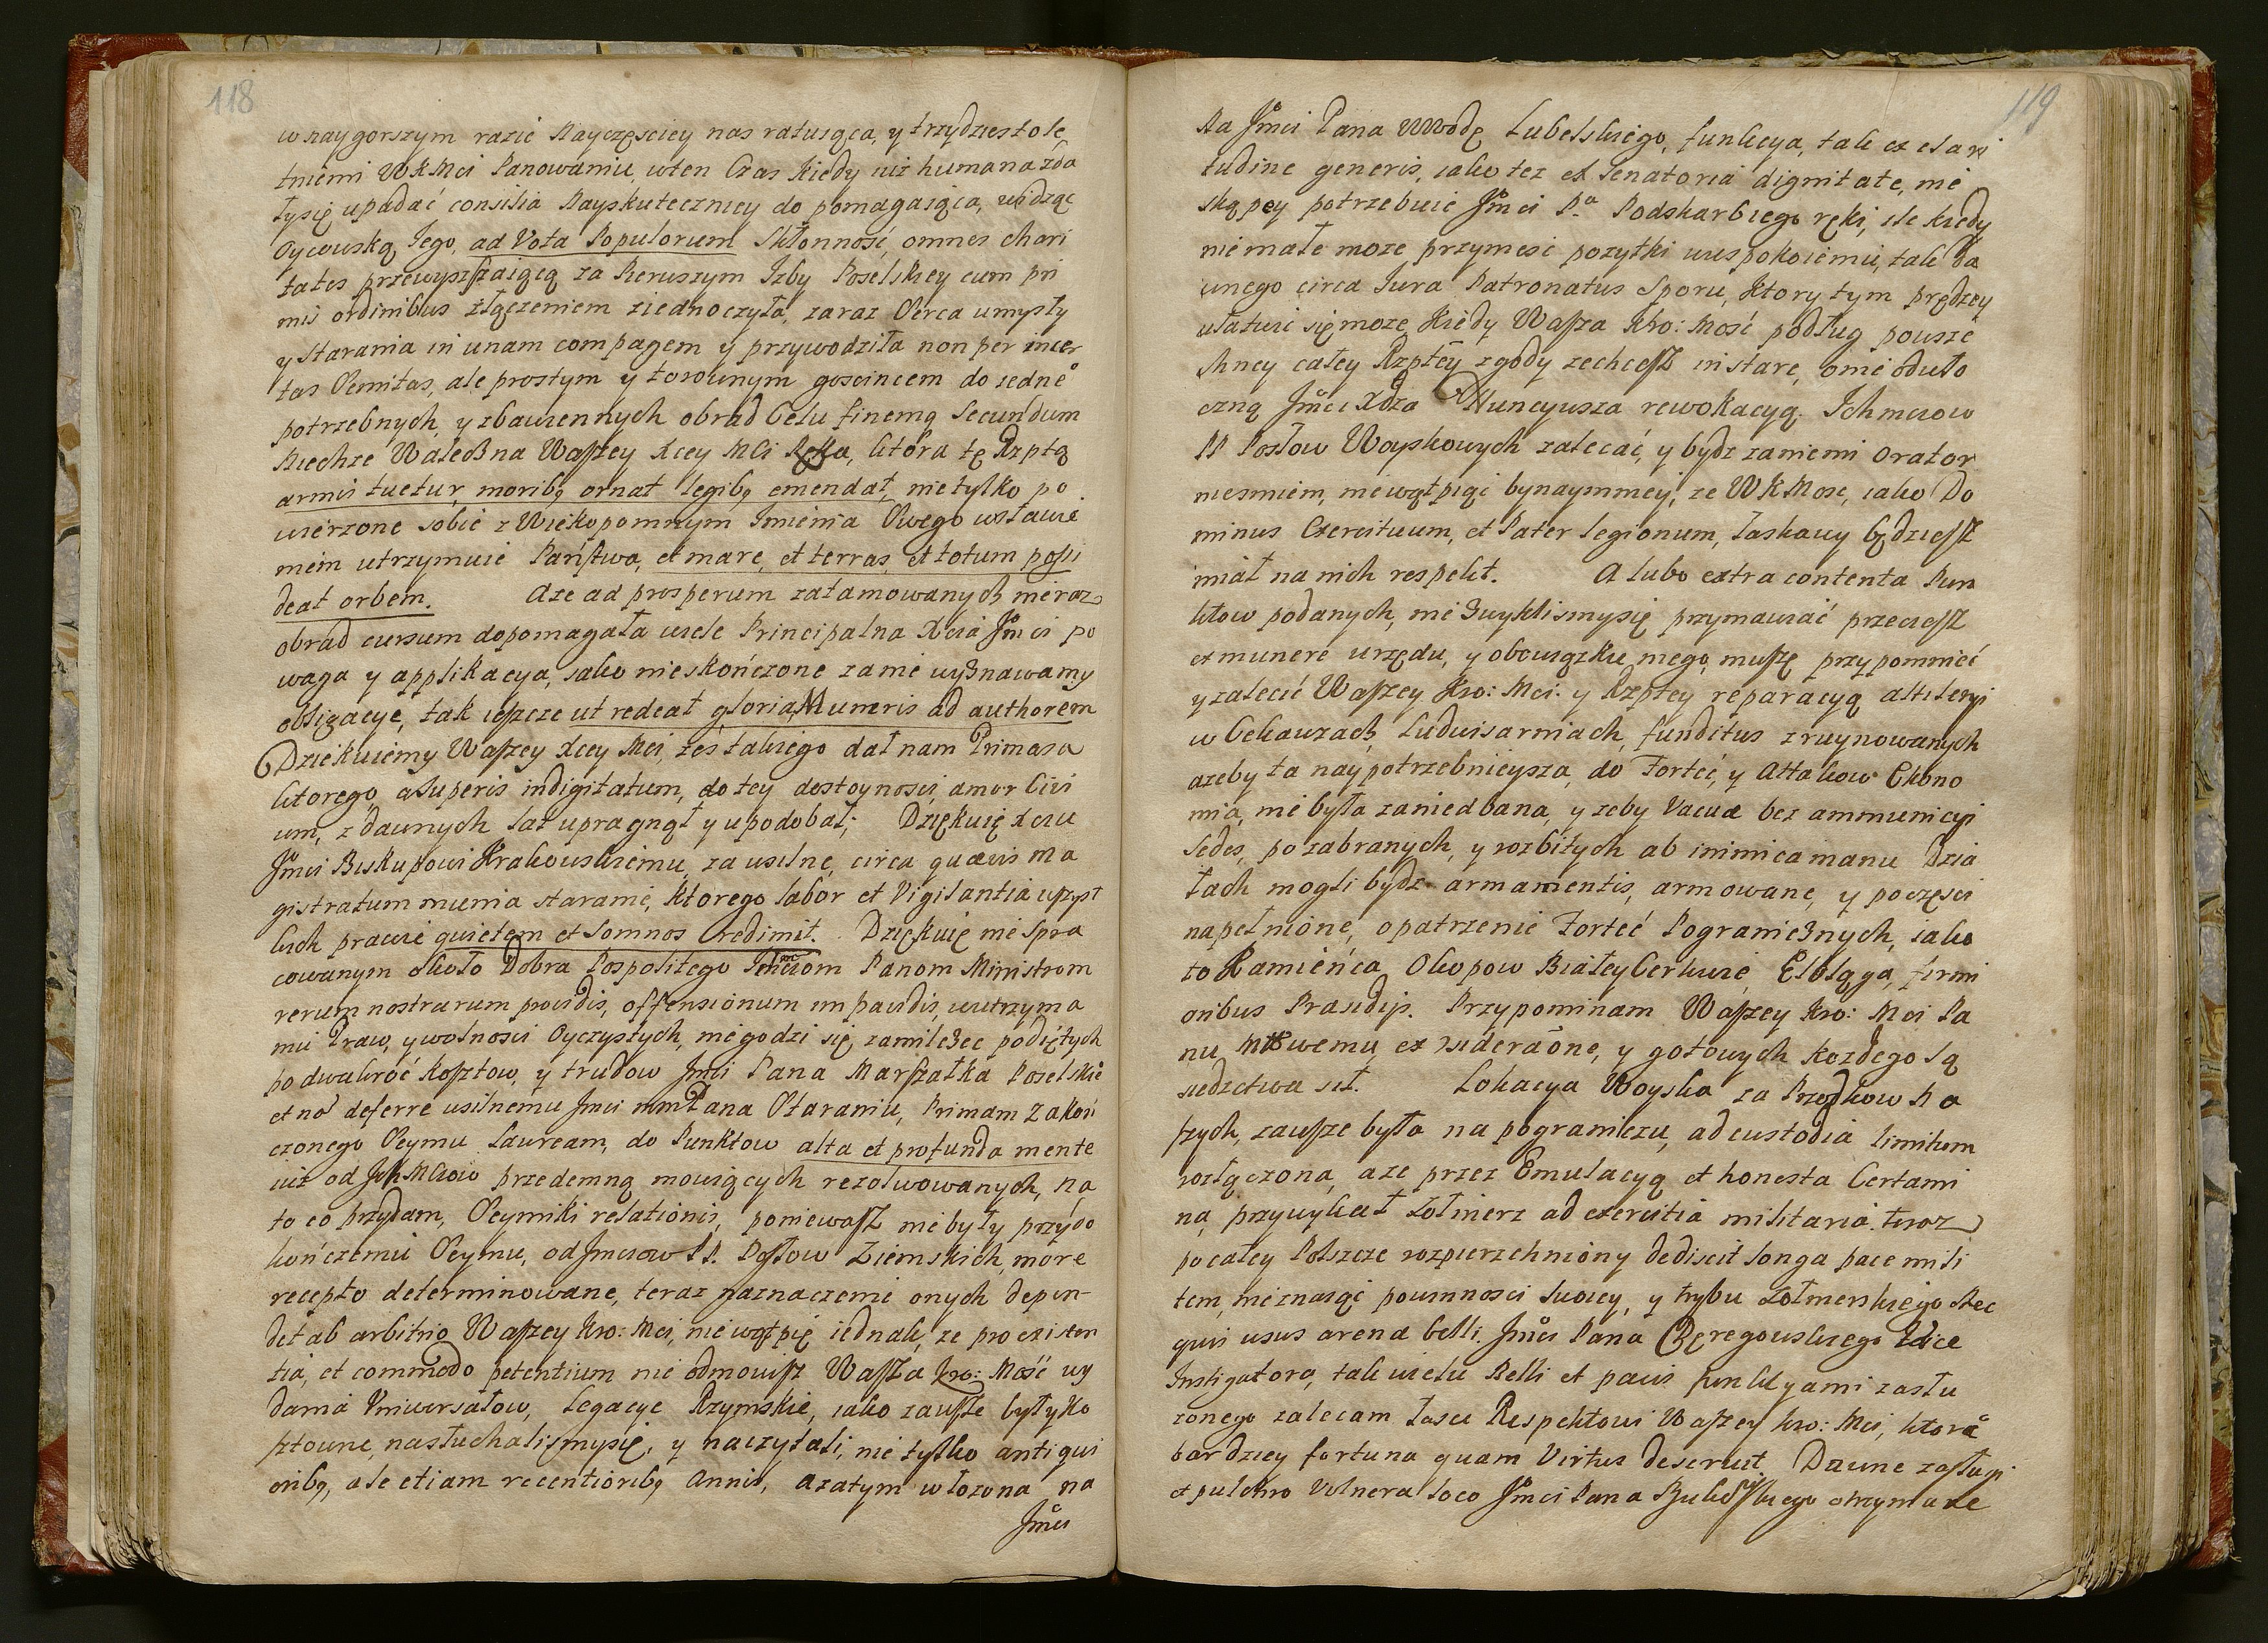 118
w naygorszym razie Nayczęsciey nas ratuiąca, y trzydziestole
tniemi WKMci Panowaniu, wten Czas Kiedy iuż humana zda
łysię upadać consilia Nayskuteczniey do pomagaiąca, widząc
Oycowską Jego, ad Vota Populorum Skłonność, omnes chari
tates przewyszszaiącą za Pierwszym Izby Poselskiey cum pri
mis ordinibus złączeniem ziednoczyła, zaraz Serca umysły
y starania in unam compagem y przywodziła non per incer
tas Semitas, ale prostym y torownym goscincem do iedne°
potrzebnych, y zbawiennych obrad Celu finemq Secundum
Niechże Waleczna Waszey Kcey Mci Ręka, ktora tę Rzptą
armis tuetur, moribq ornat legibq emendat, nietylko po
wierzone sobie z Wiekopomnym Jmienia Swego wsławie
niem utrzymuie Państwa, et mare, et terras, et totum possi
deat orbem. Aże ad prosperum zatamowanych nieraz
obrad cursum dopomagała wiele Principalna Xcia Jm̃ci po
waga y applikacya, iako nieskończone zanie wyznawamy
obligacye, tak ieszcze ut redeat gloria Muneris ad authorem
Dziekuiemy Waszey Kcey Mci, żeś takiego dał nam Primasa
ktorego, a Superis indigitatum, do tey dostoynosci, amor Civi
um, z dawnych lat upragnął y upodobał; Dziękuię Xciu
Jm̃ci Biskupowi Krakowskiemu, za usilne, circa quævis ma
gistratum munia staranie, ktorego labor et Vigilantia wszyst
kich prawie quietem et Somnos redimit. Dziękuię nie Spra
cowanym około Dobra Pospolitego Ichmciom Panom Ministrom
rerum nostrarum providis, offensionum impavidis, wutrzyma
niu Praw, y wolnosci Oyczystych, niegodzi się zamilczec podiętych
podwakroć Kosztow, y trudow Jmci Pana Marszałka Poselskie°
et no deferre usilnemu Jmci mmPana Staraniu, Primam Zakoń
czonego Seymu Lauream, do Punktow alta et profunda mente
iuż od JchMciow przedemną mowiących rezolwowanych, na
to co przydam, Seymiki relationis, poniewasz nie były przy do
kończeniu Seymu, od Jmciow PP. Posłow Ziemskich, more
recepto determinowane, teraz naznaczenie onych depen-
det ab arbitrio Waszey Kro: Mci, niewątpię iednak, ze pro existen
tia, et commodo petentium nie odmowisz Wasza Kro: Mość wy
dania Vniwersałow, Legacye Rzymskie, iako zawsze były ko
sztowne, nasłuchalismysię, y naczytali, nie tylko antiqui
oribq, ale etiam recentioribq Annis, azatym włozona na
Jm̃ci
119
Na Jm̃ci Pana WWodę Lubelskiego, funkcya, tak ex clari
tudine generis, iako tez ex Senatoria dignitate, nie
skąpey potrzebuie Jm̃ci P.ͣ Podskarbiego ręki, ile kiedy
niemałe moze przyniesc pozytki uspokoieniu, tak da
wnego circa Jura Patronatus Sporu, Ktory tym prędzey
ułatwic się moze, Kiedy Wasza Kro: Mość podług powsze
chney całey Rzptey zgody zechcesz instare, o nie odwło
czną Jm̃ci Xdza Nuncyusza rewokacyą. Ichmciow
PP Posłow Woyskowych zalecać, y bydz zaniemi orator
niesmiem, niewątpiąc bynaymniey, ze WKMosc, iako Do
minus Exercituum, et Pater legionum, łaskawy będziesz
miał na nich respekt. A lubo extra contenta Pun
ktow podanych, nie zwyklismysię przymawiać przeciesz
ex munere urzędu, y obowiązku mego, muszę przypomnieć
y zalecić Waszey Kro: Mci: y Rzeptey reparacyą altileryi
w Cekauzach, Ludwisarniach, funditus zruynowanych
azeby ta naypotrzebnieysza, do Fortec, y Attakow Ekono
mia, nie była zaniedbana, y zeby Vacuæ bez ammunicyi
Sedes, po zabranych, y rozbitych ab inimica manu Dzia
łach mogli bydz armamentis, armowane, y poczęsci
napełnione, opatrzenie Forteć Pogranicznych, iako
to Kamieńca, Okopow Białey Cerkwie, Elbląga, firmi
oribus Præsidijs. Przypominam Waszey Kro: Mci Pa
nu, memu ex videraõne, y gotowych kozdego Są
siedztwa sił. Lokacya Woyska za Przodkow Na
szych, zawsze była na pograniczu, ad custodia limitum
rozłączona, aze przez Emulacyą et honesta Certami
na, przywykał Zołnierz ad exercitia militaria. teraz
po całey Polszcze rozpierzchniony dediscit longa pace mili
tem, nieznaiąc powinnosci Swoiey, y trybu Zołnierskiego Nec
quis usus arena belli. Jm̃ci Pana Bęregowskiego Wice
Instigatora, tak wielu Belli et pacis funkcyami zasłu
zonego zalecam łasce Respektowi Waszey Kro: Mci, ktore°
bardziey fortuna quam Virtus deseruit. Dawne zasługi
et pulchro Vulnera loco Jm̃ci Pana otrzymane